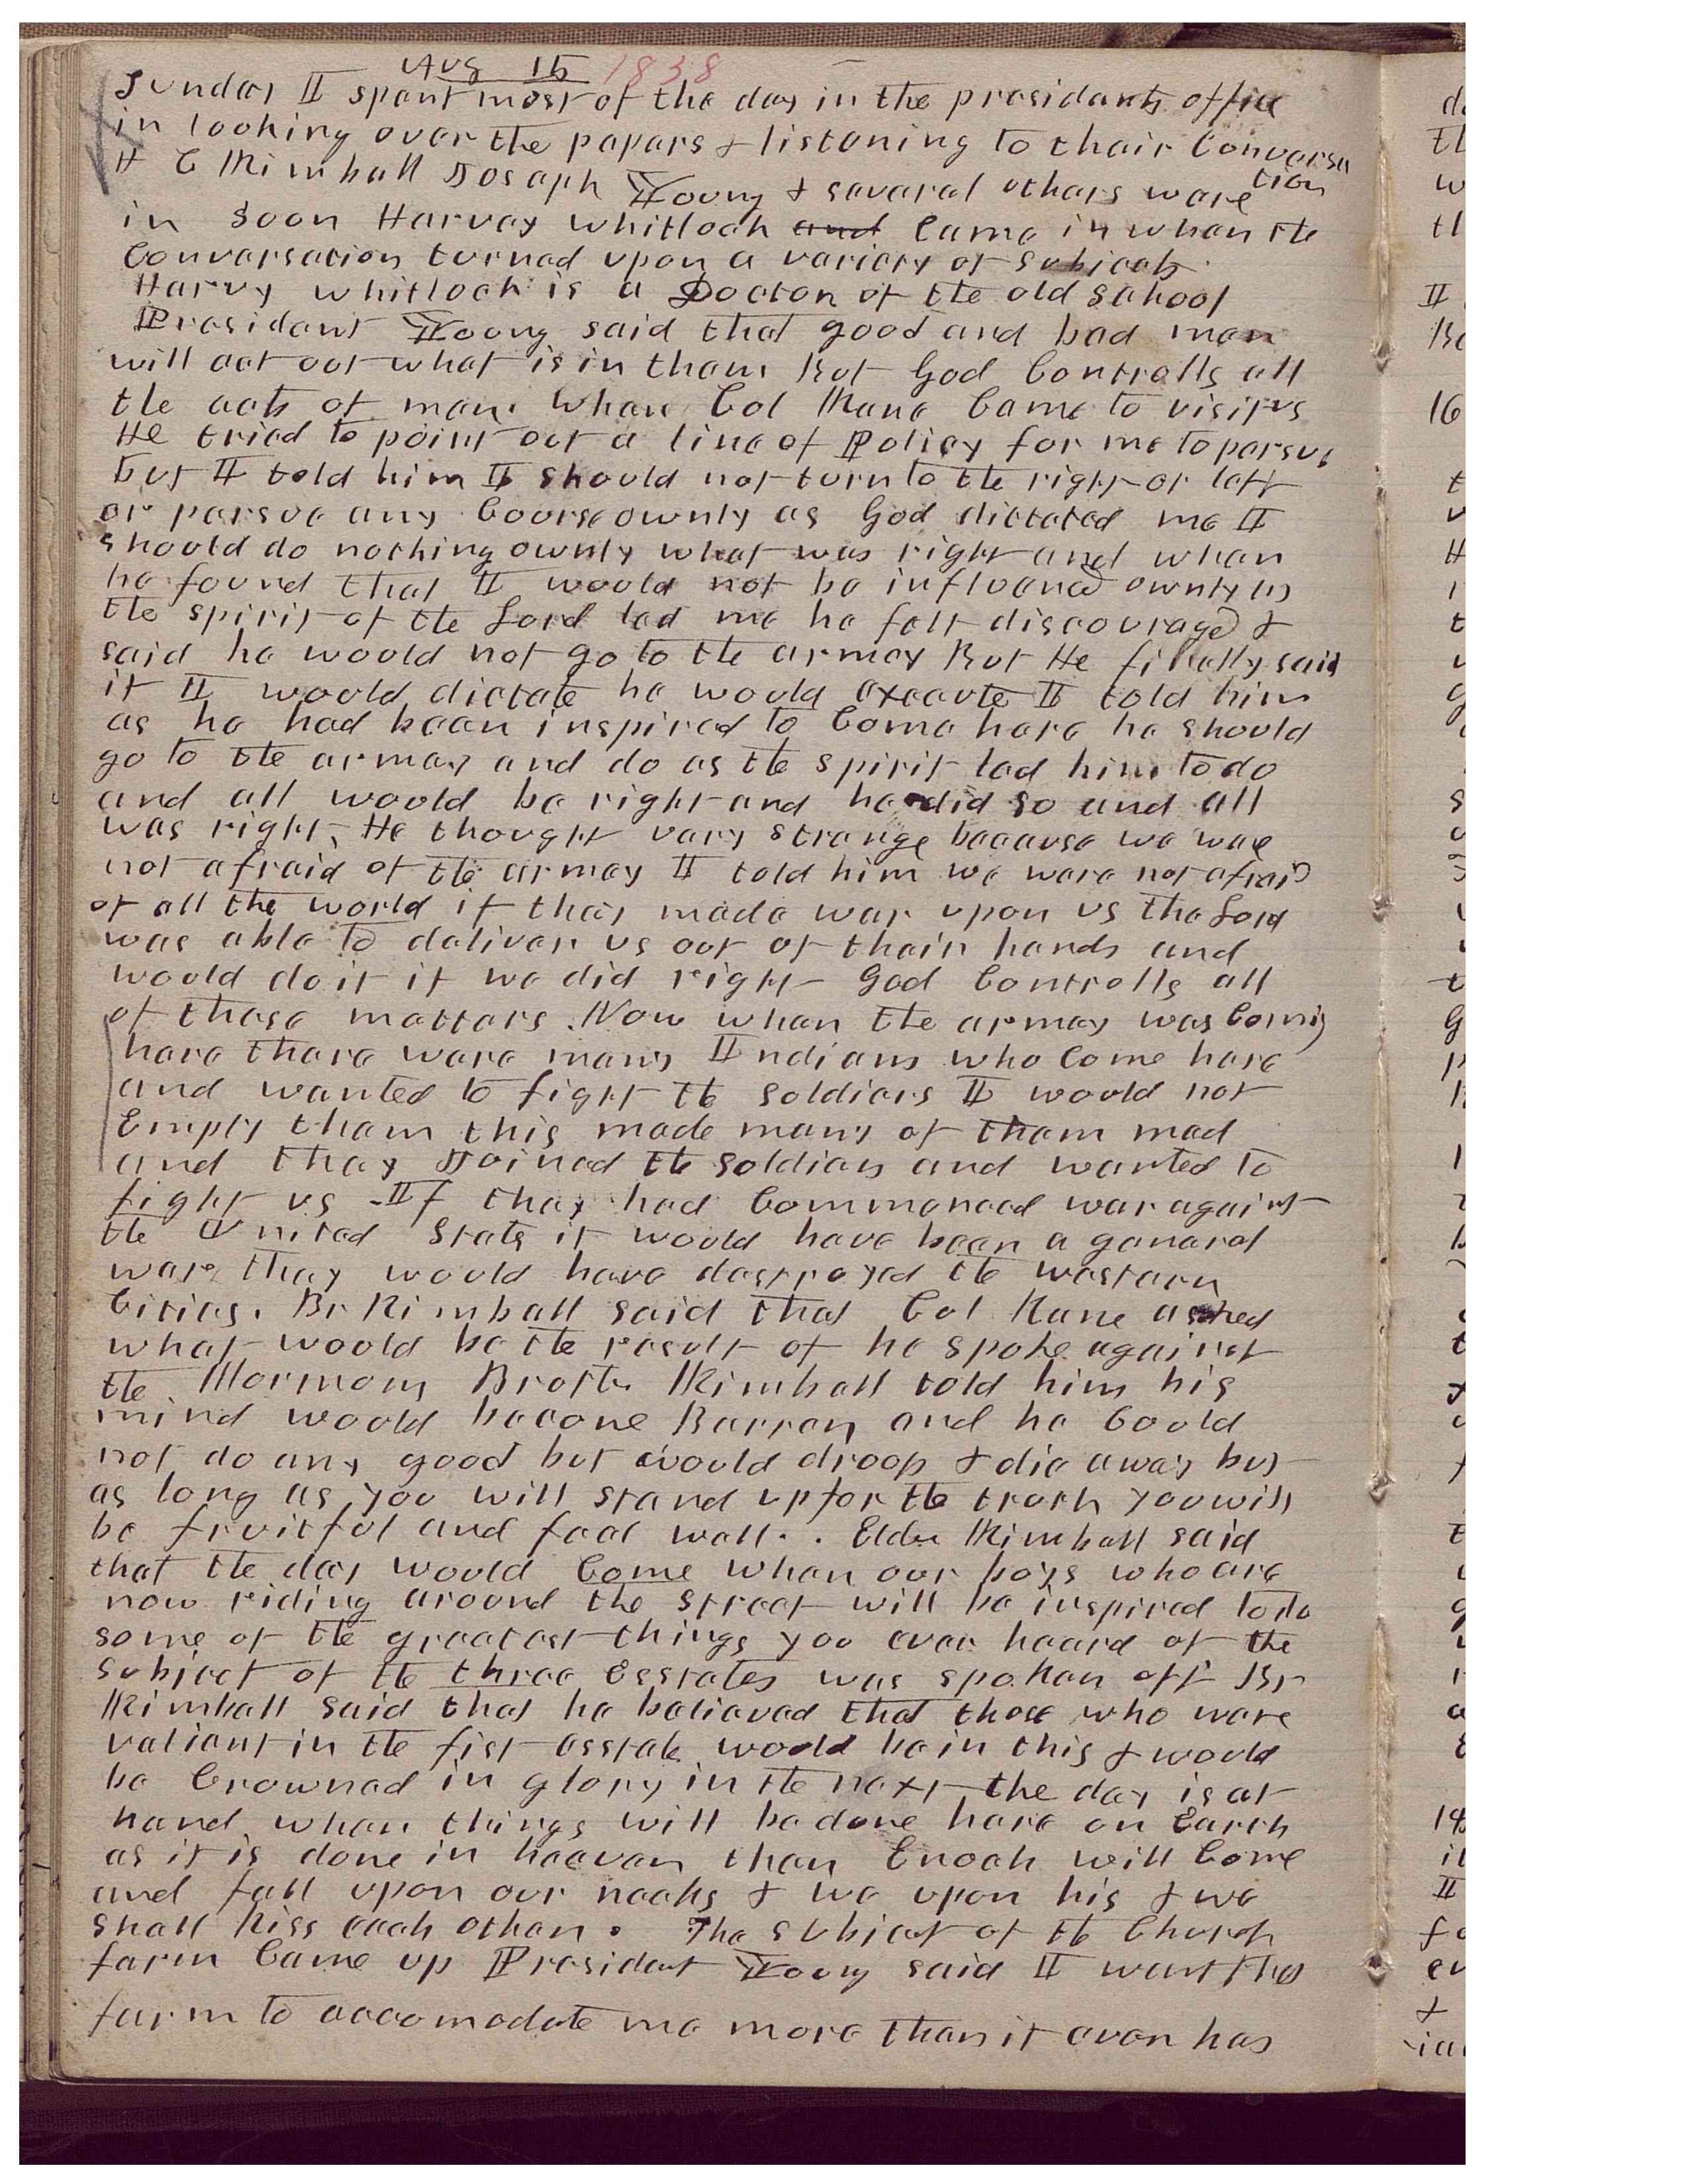 Aug 15 1858
Sunday I spent most of the day in the presidents office
in looking over the papers & listening to their Conversa
tion
H C Kimball Joseph Young & several others were
in soon Harvey Whitlock and Came in when the
Conversation turned upon a variety of subjects.
Harvy Whitlock is a Doctor of the old School
President Young said that good and bad men
will act out what is in them But God Controlls all
the acts of men. When Col Kane Came to visit us
He tried to point out a line of Policy for me to persue
but I told him I should not turn to the right or left
or persue any Course ownly as God dictated me I
should do nothing ownly what was right and when
he found that I would not be influenced ownly as
the spirit of the Lord led me he felt discouraged &
said he would not go to the armey But He finally said
if I would dictate he would execute I told him
as he had been inspired to Come here he should
go to the armey and do as the spirit led him to do
and all would be right and he did so and all
was right, He thought very strange because we wae
not afraid of the armey I told him we were not afraid
of all the world if they made war upon us the Lord
was able to deliver us out of their hands and
would do it if we did right God Controlls all
of these matters. Now when the armey was Coming
here there were many Indians who Come here
and wanted to fight the soldiers I would not
Emply them this made many of them mad
and they Joined the soldiers and wanted to
fight us - If they had Commenced war against
the United States it would have been a general
ware they would have destroyed the western
Cities. Br Kimball said that Col Kane asked
what would be the result of he spoke against
the Mormons Brother Kimball told him his
mind would become Barren and he Could
not do any good but would droop & die away but
as long as you will stand up for the truth you will
be fruitful and feel well. . Elder Kimball said
that the day would Come when our boys who are
now riding around the street will be inspired to do
some of the greatest things you ever heard of the
subject of the three Esstates was spoken off Br
Kimball said that he believed that those who were
valiant in the fist esstate would be in this & would
be Crowned in glory in the next the day is at
hand when things will be done here on Earth
as it is done in heaven then Enoch will Come
and fall upon our necks & we upon his & we
shall kiss each other. The subject of the Church
farm Came up President Young said I want this
farm to accomodate me more than it ever has